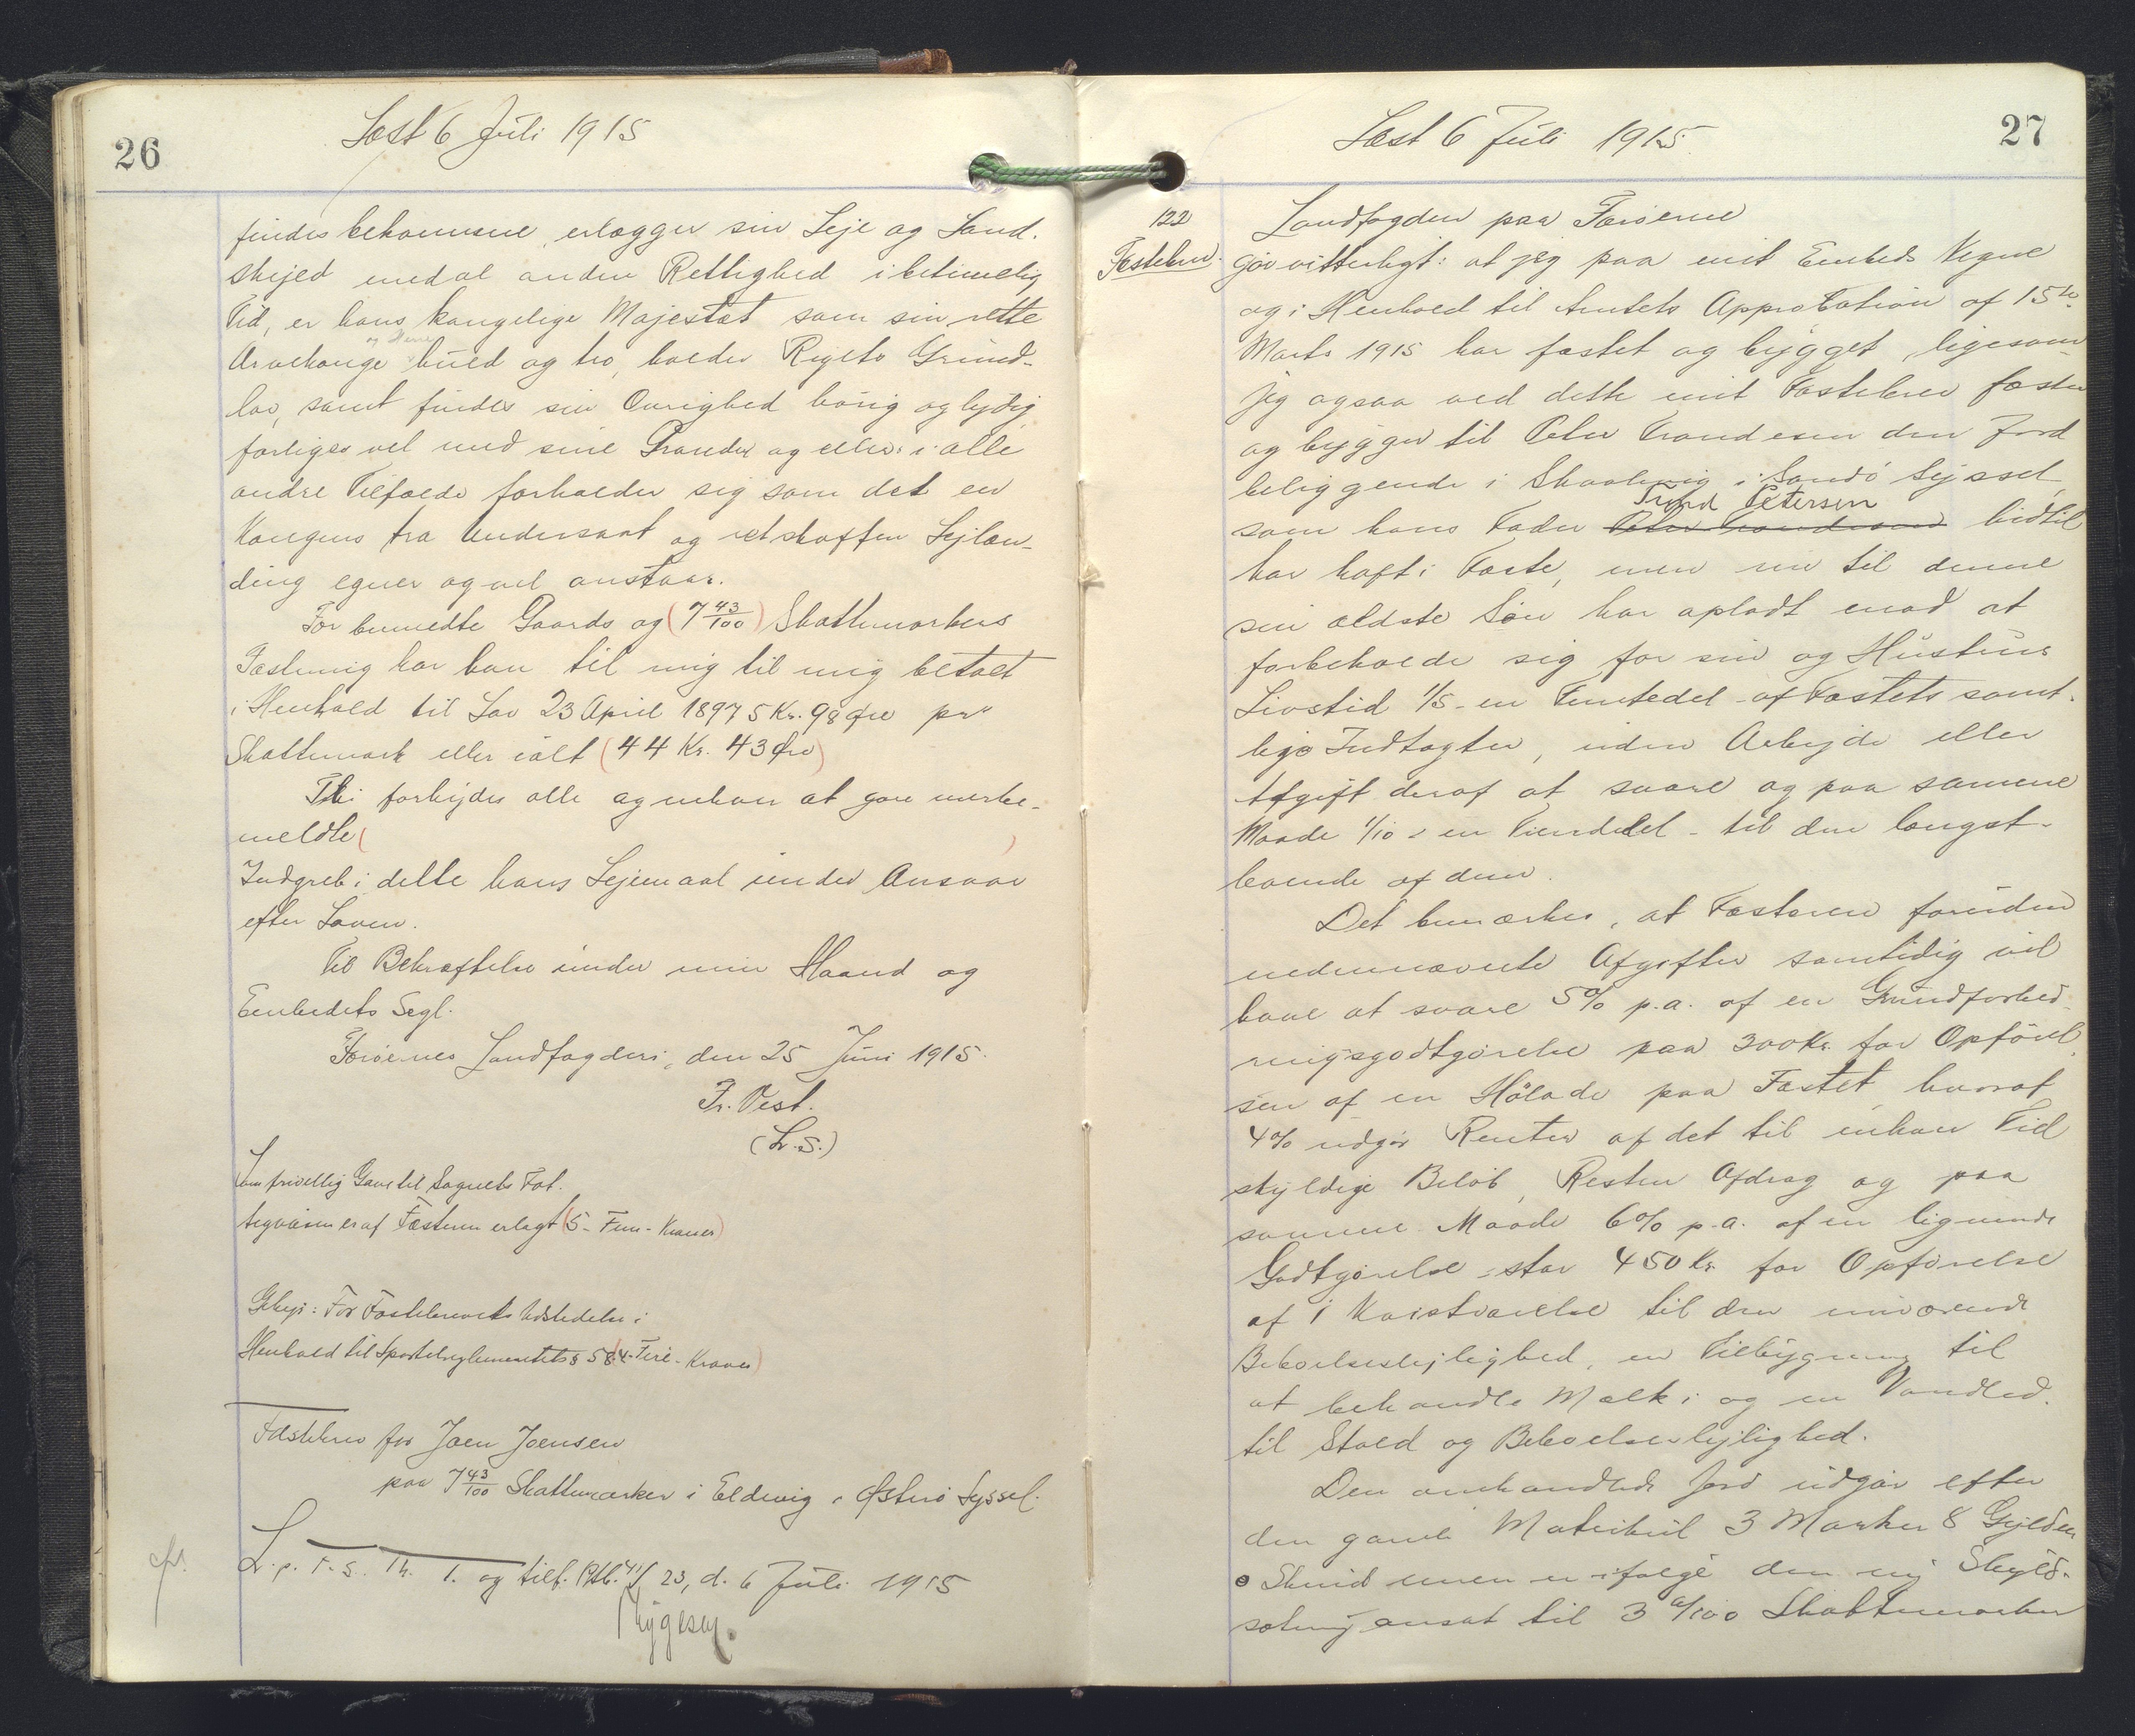 26
Læst 6 Juli 1915
findes bekommene, erlægger sin Leje og Land-
skyld med al anden Rettighed i betimelig
Tid, er hans kongelige Majestæt som sin rette
og Herre
Arvekonge huld og tro, holder Rigets Grund-
lov, samt findes sin Øvrighed hørig og lydig,
forliges vel med sine Grander og ellers i alle
andre Tilfælde forholder sig som det en
Kongens tro Undersaat og retskaffen Lejlæn-
ding egner og vel anstaar.
For bemeldte Gaards og (7 43/100) Skattemarkers
Fæstning har han til mig til mig betalt
i Henhold til Lov 23 April 1897 5 Kr. 98 Øre pr.
Skattemark eller ialt (44 Kr. 43 Øre)
Thi forbydes alle og enhver at gøre merbe-
meldte ( )
Indgreb i dette hans Lejemaal under Ansvar
efter Loven.
Til Bekræftelse under min Haand og
Embedets Segl.
Færøernes Landfogderi, den 25 Juni 1915.
Fr. Vest.
(L.S.)
Som frivillig Gave til Sognets Fat-
tigvæsen er af Fæsteren erlagt (5 - Fem - Kroner)
Gebyr: For Fæstebrevets Udstedelse i
Henhold til Sportelreglementets § 58 (4 - Fire - Kroner)
Fæstebrev for Joen Joensen
paa 7 43/100 Skattemarker i Eldevig i Østerø Syssel.
L. p. F. S. Th. T. og tilf. Ptb. 4/ 23, d. 6 Juli 1915
cfr.
27
Læst 6 Juli 1915
122
Fæstebrev.
Landfogden paa Færøerne
gør vitterligt: at jeg paa mit Embeds Vegne
og i Henhold til Amtets Approbation af 15de
Marts 1915 har fæstet og bygget, ligesom
jeg ogsaa ved dette mit Fæstebrev fæster
og bygger til Peter Trondesen den Jord
beliggende i Skaalevig i Sandø Syssel,
Trond Petersen
som hans Fader Peter Trondesen hidtil
har haft i Fæste, men nu til denne
sin ældste Søn har opladt mod at
forbeholde sig for sin og Hustrus
Livstid 1/5 - en Femtedel - af Fæstets samt-
lige Indtægter, uden Arbejde eller
Afgift deraf at svare og paa samme
Maade 1/10 - en Tiendedel - til den længst-
levende af dem.
Det bemærkes, at Fæsteren foruden
nedennævnte Afgifter samtidig vil
have at svare 5% p.a. af en Grundforbed-
ringsgodtgørelse paa 300 Kr. for Opførel-
sen af en Hølade paa Fæstet, hvoraf
4% udgør Renter af det til enhver Tid
skyldige Beløb, Resten Afdrag og paa
samme Maade 6% p.a. af en lignende
Godtgørelse - stor 450 Kr. for Opførelse
af 1 Kvistværelse til den nuværende
Beboelseslejlighed, en Tilbygning til
at behandle Mælk i og en Vandled.
til Stald og Beboelseslejlighed.
Den omhandlede Jord udgør efter
den gamle Matrikul 3 Marker 8 Gylden
0 Skind men er ifølge den ny Skyld-
sætning ansat til 3 Skattemarker